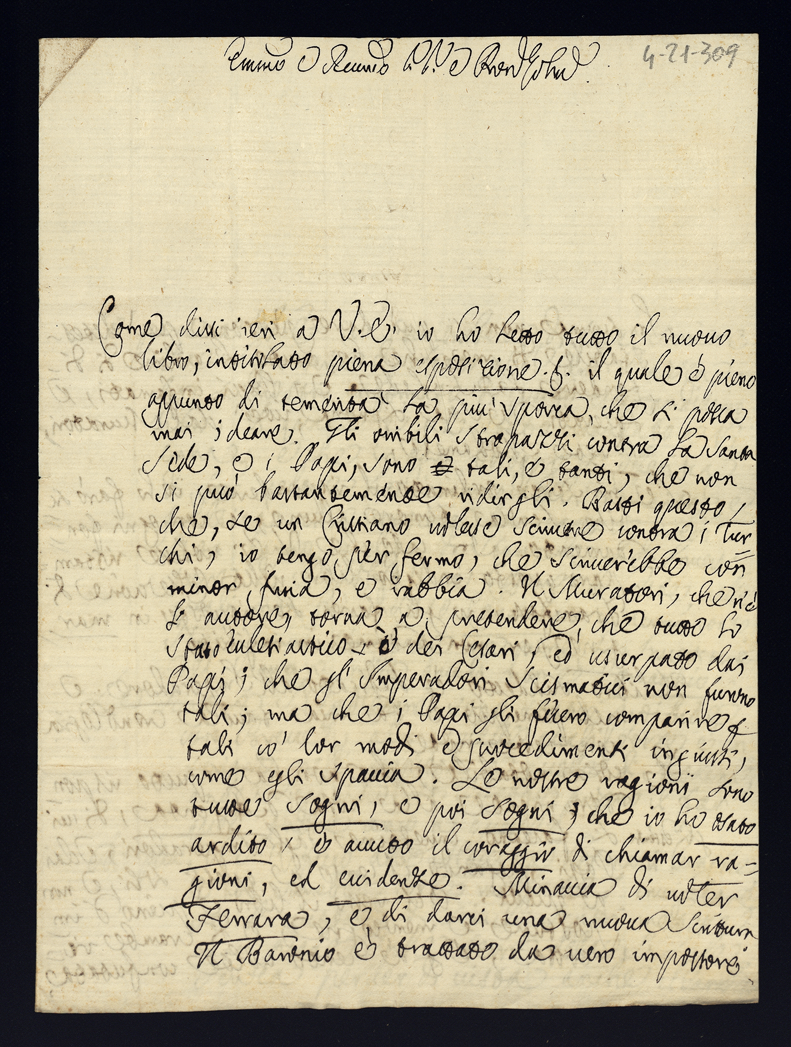 4-21-309
Emmo e Revmo
Come dissi ieri a V.E. io ho letto tutto il nuovo
libro, intitolato piena esposizione. il quale è pieno
appunto di la più sporca, che si possa
mai ideare. Gli orribili strapazzi contra la Santa
Sede, e i Papi, sono tali, e tanti, che non
si può bastantemente ridirgli. Basti questo,
che, se un Cristiano volesse scrivere contra i Tur
chi, io tengo per fermo, che scriverebbe con
minor furia, e rabbia. Il Muratori, che n'è
l'autore, torna a pretendere, che tutto lo
Stato ecclesiastico è dei Cesari, ed usurpato dai
Papi; che gl'Imperadori Scismatici non furono
tali; ma che i Papi gli fecero comparire
tali co' lor modi e procedimenti ingiusti,
come egli spaccia. Le nostre ragioni sono
tutte sogni, e poi sogni; che io ho usato
ardito e avuto il coraggio di chiamar ra=
gioni, ed evidenze. Minaccia di voler
Ferrara, e di darci una nuova Scrittura
Il Baronio è trattato da vero impostore